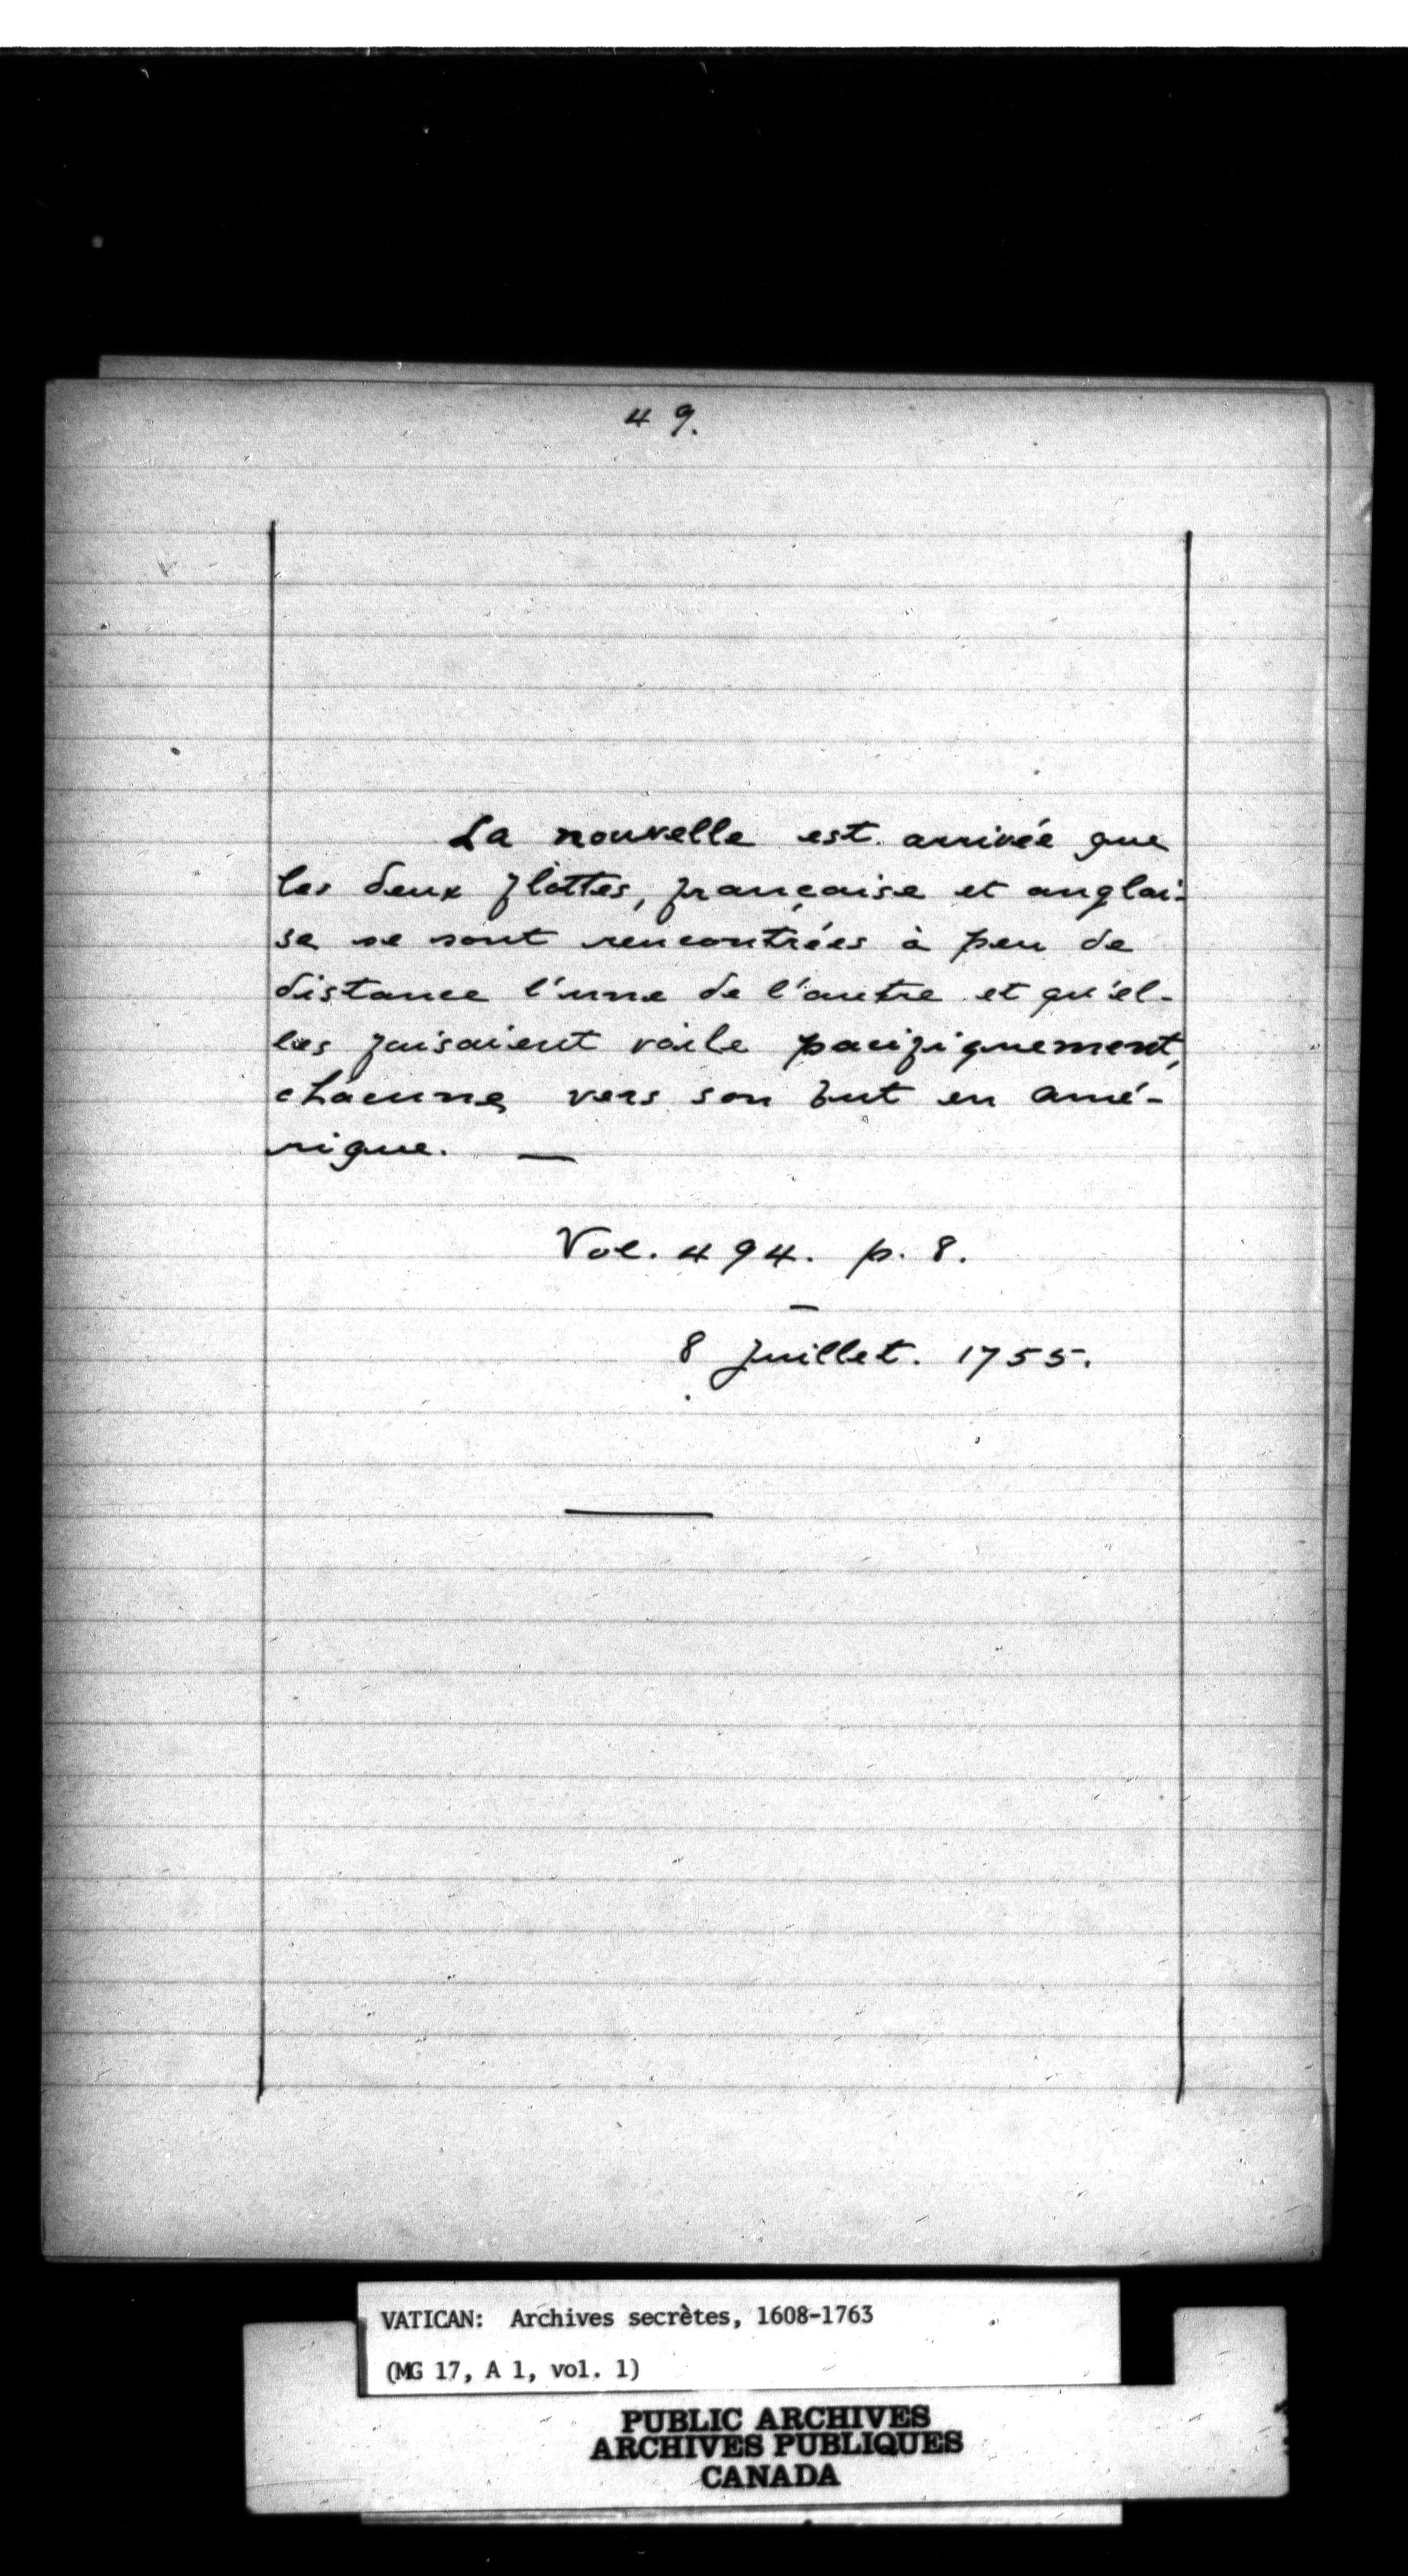 49.
La nouvelle est arrivée que
les deux flottes, française et anglai-
se se sont rencontrées à peu de
distance l'une de l'autre et qu'el-
les faisaient voile pacifiquement,
chacune vers son but en amé-
rique. —
Vol. 494. p. 8.
—
8 juillet. 1755.
VATICAN: Archives secrètes, 1608-1763
(MG 17, A 1, vol. 1)
PUBLIC ARCHIVES
ARCHIVES PUBLIQUES
CANADA